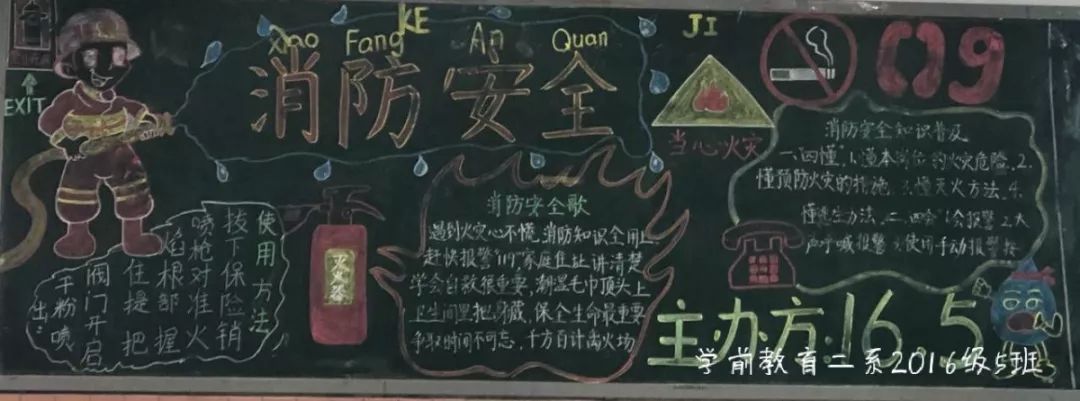 KE JI
Xiao Fang An Quan
消防安全
EXIT
当心火灾
使用方法
拔下保险销
喷枪对准火
焰根部握
住提把
阀门开启
干粉喷
出
灭火器
消防安全歌
遇到火灾心不慌,消防知识全用上
赶快报警119家庭住址讲清楚
学会自救很重要,潮湿毛巾顶头上
卫生间里把身藏,保全生命最重要
争取时间不可忘,千方百计离火场
消防安全知识普及
一、四懂,1.懂本岗位的火灾危险,2.
懂预防火灾的措施,3.懂灭火方法,4.
懂逃生方法,二、四会1会报警2大
声呼喊报警
使用手动报警按
主办方:16.5
学前教育二系2016级5班